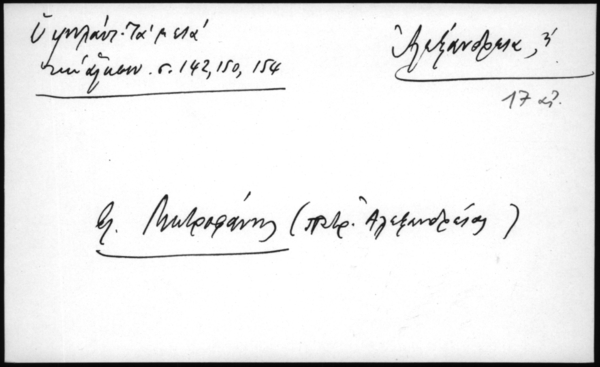 Ὑψηλάντ. Τὰ μετὰ
τὴν ἅλωσιν. σ. 142, 150, 154
Ἀλεξάνδρεια,
17 αἰ.
Μητροφάνης (πατρ. Ἀλεξανδρείας)